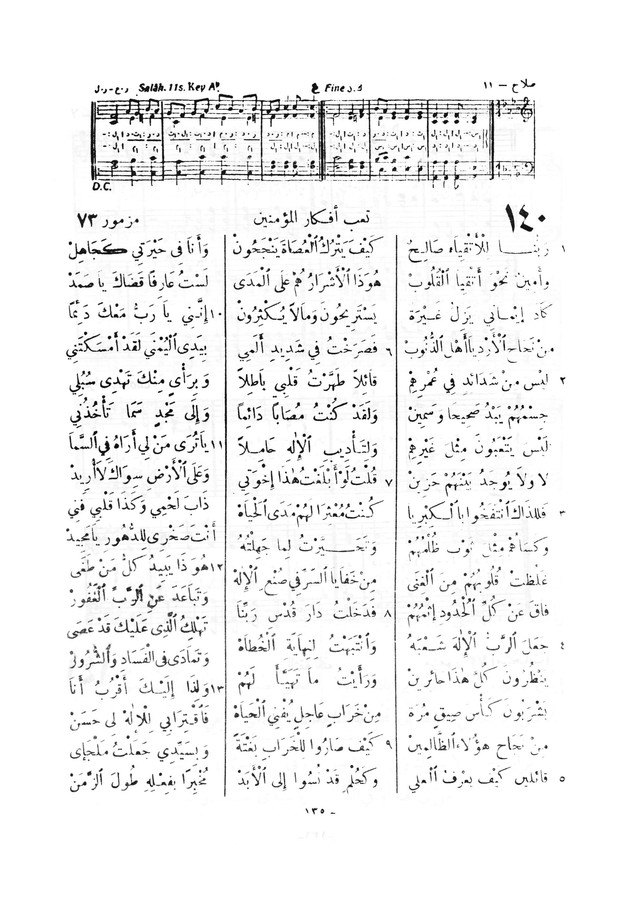 صلاح - ١١
Fine د.د
Salâh. 11s. Key A♭
D.C.
١٤٠
تعب أفكار المؤمنين
مزمور ٧٣
١ رَبُّنَا لِلْأَتْقِيَاءِ صَالِحٌ
وَأَمِينٌ نَحْوَ أَتْقِيَا ٱلْقُلُوبْ
كَادَ إِيمَانِي يَزِلُّ غَيْرَةً
مِنْ نَجَاحِ ٱلْأَرْدِيَا أَهْلِ ٱلذُّنُوبْ
٢ لَيْسَ مِنْ شَدَائِدٍ فِي عُمْرِهِمْ
جِسْمُهُمْ يَبْدُو صَحِيحًا وَسَمِينْ
لَيْسَ يَتْعَبُونَ مِثْلَ غَيْرِهِمْ
لَا وَلَا يُوجَدُ بَيْنَهُمْ حَزِينْ
٣ فَلِذَاكَ ٱنْتَفَخُوا بِٱلْكِبْرِيَا
وَكَسَاهُمْ مِثْلَ ثَوْبٍ ظُلْمُهُمْ
غَلُظَتْ قُلُوبُهُمْ مِنَ ٱلْغِنَى
فَاقَ عَنْ كُلِّ ٱلْحُدُودِ إِثْمُهُمْ
٤ جَعَلَ ٱلرَّبُّ ٱلْإِلٰهُ شَعْبَهُ
يَنْظُرُونَ كُلَّ هٰذَا حَائِرِينْ
يَشْرَبُونَ كَأْسَ ضِيقٍ مُرَّةً
مِنْ نَجَاحِ هٰؤُلَاءِ ٱلظَّالِمِينْ
٥ قَائِلِينَ كَيْفَ يَعْرِفُ ٱلْعَلِي
كَيْفَ يَتْرُكُ ٱلْعُصَاةَ يَنْجَحُونْ
هُوَذَا ٱلْأَشْرَارُ هُمْ عَلَى ٱلْمَدَى
يَسْتَرِيحُونَ وَمَالًا يُكْثِرُونْ
٦ فَصَرَخْتُ فِي شَدِيدِ أَلَمِي
قَائِلًا طَهَّرْتُ قَلْبِي بَاطِلًا
وَلَقَدْ كُنْتُ مُصَابًا دَائِمًا
وَلِتَأْدِيبِ ٱلْإِلٰهِ حَامِلًا
٧ قُلْتُ لَوْ أَبْلَغْتُ هٰذَا إِخْوَتِي
كُنْتُ مُعْثِرًا لَهُمْ مَدَى ٱلْحَيَاهْ
وَتَحَيَّرْتُ لِمَا جَهِلْتُهُ
مِنْ خَفَايَا ٱلسِّرِّ فِي صُنْعِ ٱلْإِلٰهْ
٨ فَدَخَلْتُ دَارَ قُدْسِ رَبِّنَا
وَٱنْتَبَهْتُ لِنِهَايَةِ ٱلْخُطَاهْ
وَرَأَيْتُ مَا تَهَيَّأَ لَهُمْ
مِنْ خَرَابٍ عَاجِلٍ يُفْنِي ٱلْحَيَاهْ
٩ كَيْفَ صَارُوا لِلْخَرَابِ بَغْتَةً
وَكَحُلْمٍ قَدْ نُسُوا إِلَى ٱلْأَبَدْ
وَأَنَا فِي حَيْرَتِي كَجَاهِلٍ
لَسْتُ عَارِفًا قَضَاكَ يَا صَمَدْ
١٠ إِنَّنِي يَا رَبُّ مَعْكَ دَائِمًا
بِيَدِي ٱلْيُمْنَى لَقَدْ أَمْسَكْتَنِي
وَبِرَأْيٍ مِنْكَ تَهْدِي سُبُلِي
وَإِلَى مَجْدٍ سَمَا تَأْخُذُنِي
١١ يَا تُرَى مَنْ لِي أَرَاهُ فِي ٱلسَّمَا
وَعَلَى ٱلْأَرْضِ سِوَاكَ لَا أُرِيدْ
ذَابَ لَحْمِي وَكَذَا قَلْبِي فَنِي
أَنْتَ صَخْرِي لِلدُّهُورِ يَا مَجِيدْ
١٢ هُوَذَا يَبِيدُ كُلُّ مَنْ طَغَى
وَتَبَاعَدَ عَنِ ٱلرَّبِّ ٱلْغَفُورْ
تُهْلِكُ ٱلَّذِي عَلَيْكَ قَدْ عَصَى
وَتَمَادَى فِي ٱلْفَسَادِ وَٱلشُّرُورْ
١٣ وَلِذَا إِلَيْكَ أَقْرُبُ أَنَا
فَٱقْتِرَابِي لِلْإِلٰهِ لِي حَسَنْ
وَبِسَيِّدِي جَعَلْتُ مَلْجَإِي
مُخْبِرًا بِفِعْلِهِ طُولَ ٱلزَّمَنْ
- ١٣٥ -